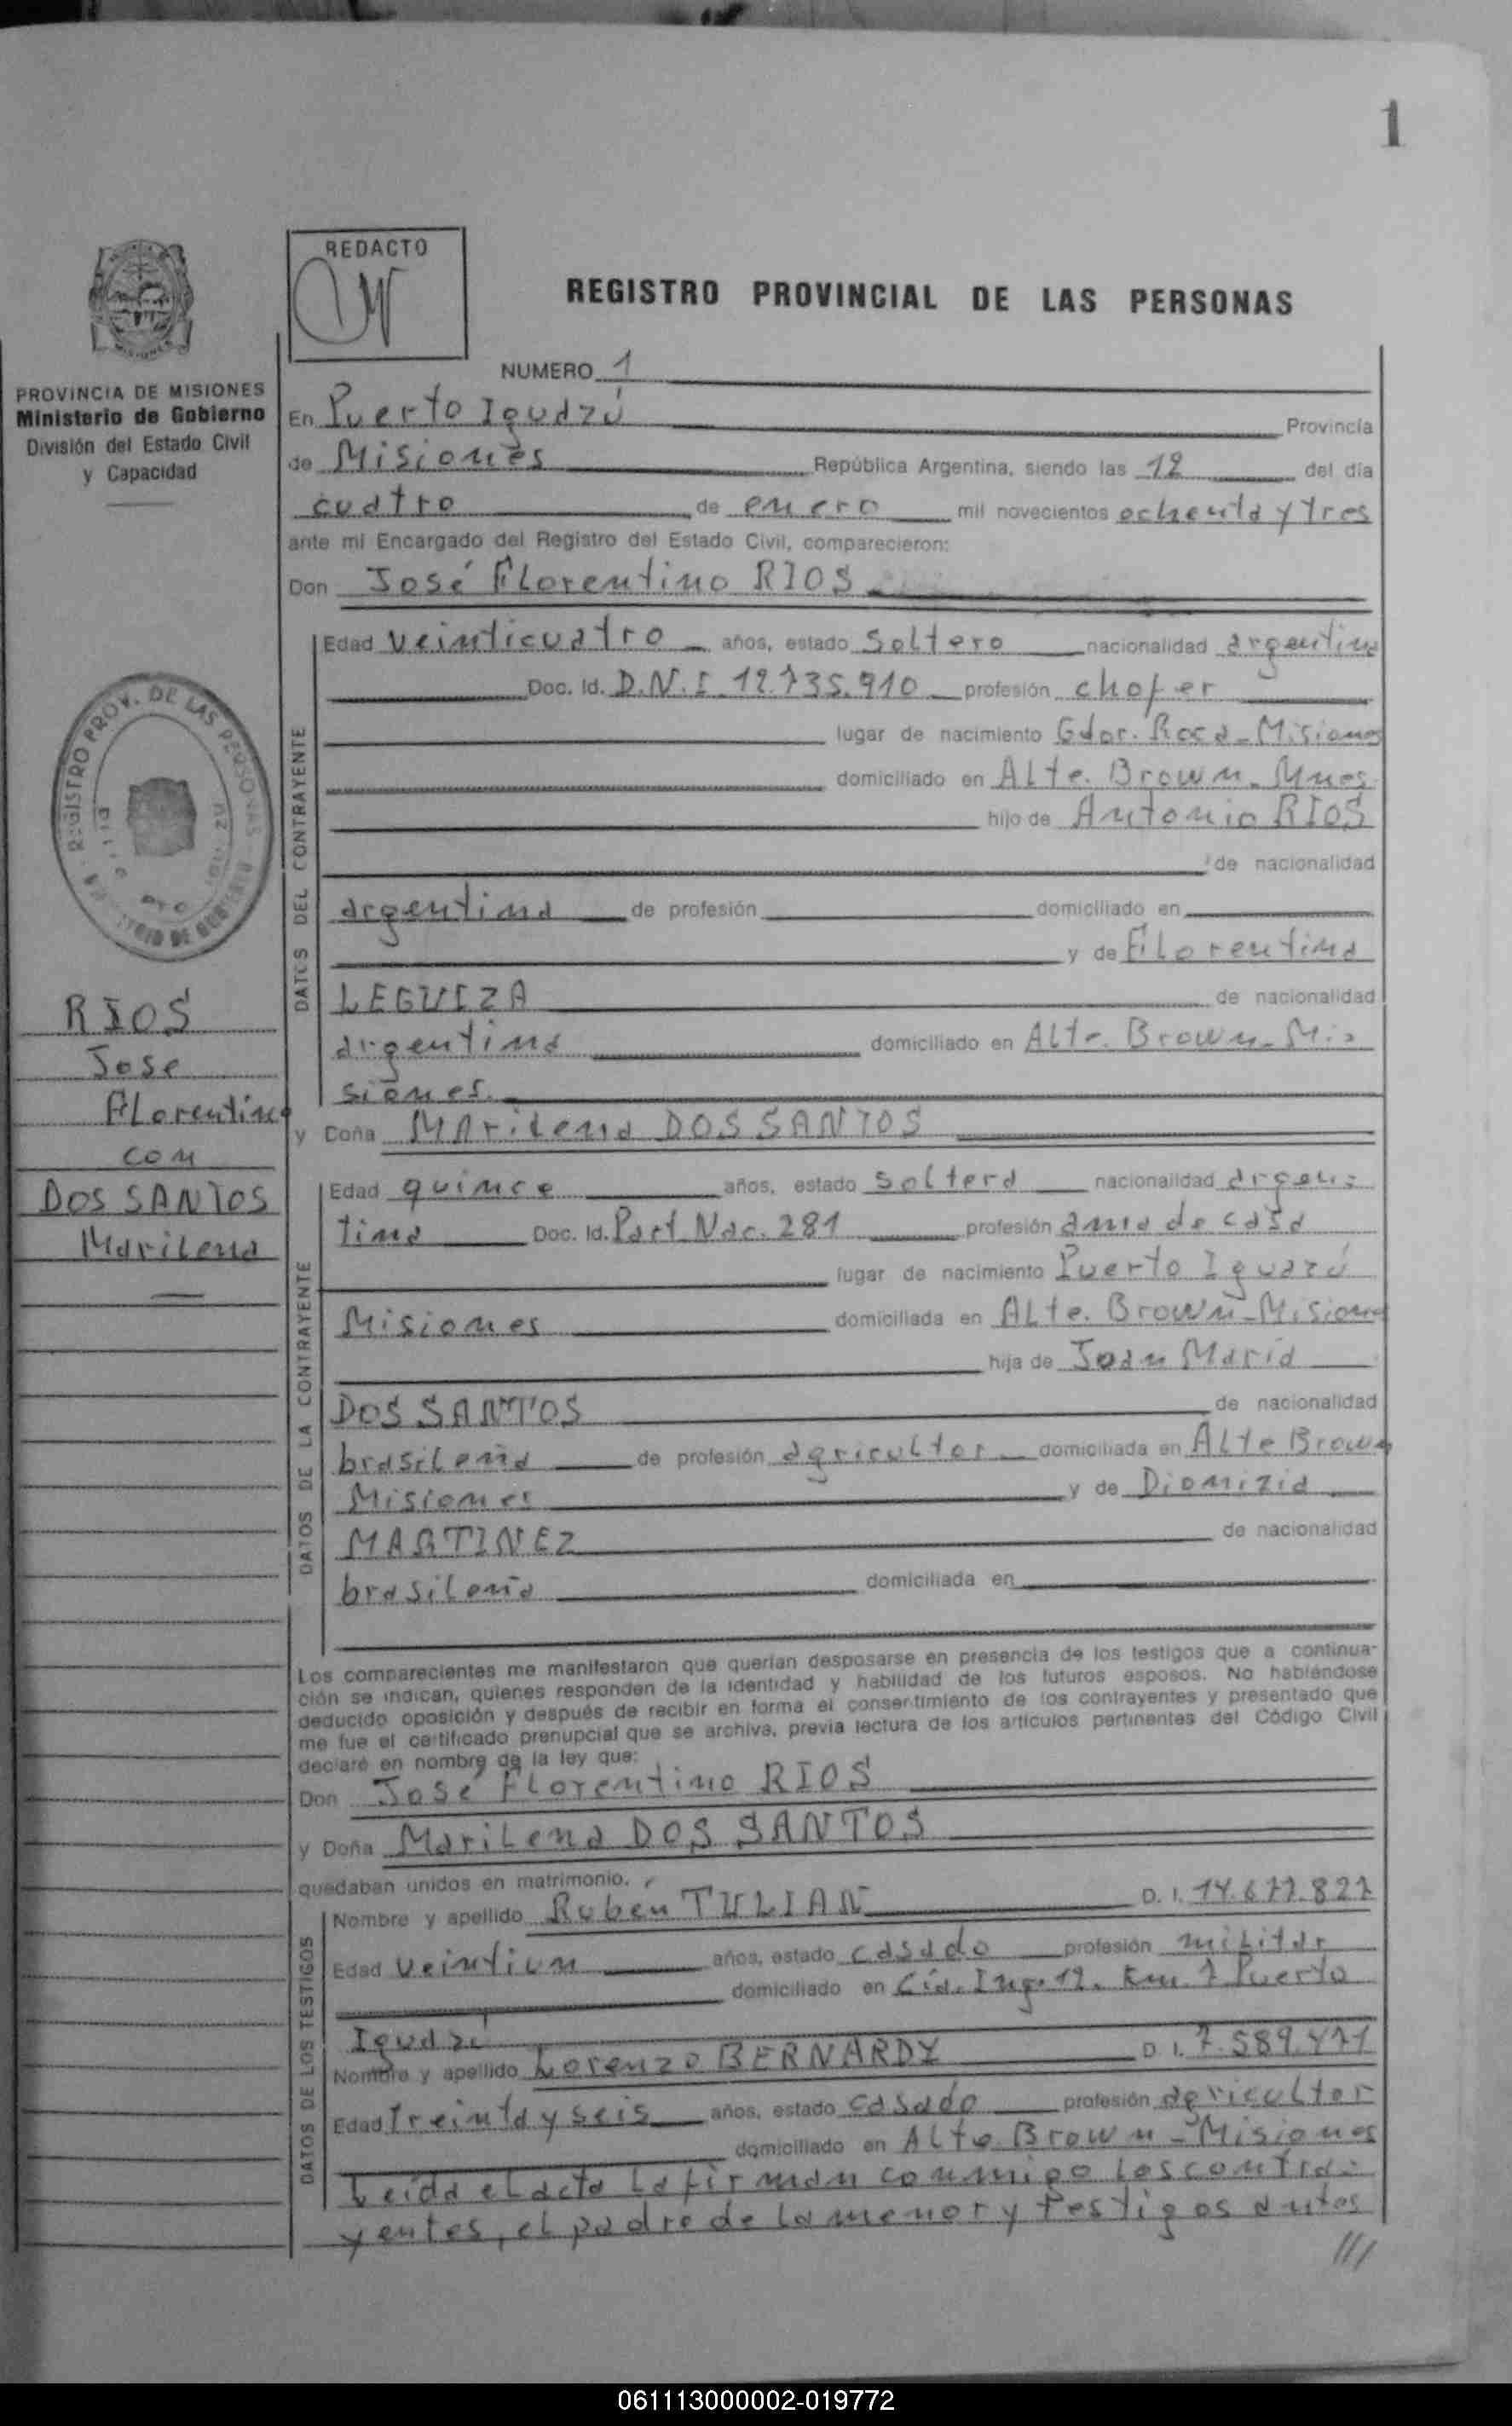 1
REDACTO
REGISTRO PROVINCIAL DE LAS PERSONAS
PROVINCIA DE MISIONES
Ministerio de Gobierno
División del Estado Civil
y Capacidad
NUMERO 1
En Puerto Iguazú Provincia
de Misiones República Argentina, siendo las 12 del día
cuatro de enero mil novecientos ochenta y tres
ante mi Encargado del Registro del Estado Civil, comparecieron:
Don José Florentino RIOS
REGISTRO PROV. DE LAS PERSONAS
RIOS
Jose
Florentino
con
DOS SANTOS
Marilena
DATOS DEL CONTRAYENTE
Edad veinticuatro años, estado soltero nacionalidad argentino
Doc. Id. D.N.I. 12.735.910 profesión chofer
lugar de nacimiento Gdor. Roca - Misiones
domiciliado en Alte. Brown - Mnes.
hijo de Antonio RIOS
de nacionalidad
argentina de profesión domiciliado en
y de Florentina
LEGUIZA de nacionalidad
argentina domiciliado en Alte. Brown - Mi-
siones.
y Doña Marilena DOS SANTOS
DATOS DE LA CONTRAYENTE
Edad quince años, estado soltera nacionalidad argen-
tina Doc. Id. Part. Nac. 281 profesión ama de casa
lugar de nacimiento Puerto Iguazú
Misiones domiciliada en Alte. Brown - Misiones
hija de Joan Maria
DOS SANTOS de nacionalidad
brasileña de profesión agricultor domiciliada en Alte Brown
Misiones y de Dionizia
MARTINEZ de nacionalidad
brasileña domiciliada en
Los comparecientes me manifestaron que querían desposarse en presencia de los testigos que a continua-
ción se indican, quienes responden de la identidad y habilidad de los futuros esposos. No habiéndose
deducido oposición y después de recibir en forma el consentimiento de los contrayentes y presentado que
me fue el certificado prenupcial que se archiva, previa lectura de los artículos pertinentes del Código Civil
declaré en nombre de la ley que:
Don José Florentino RIOS
y Doña Marilena DOS SANTOS
quedaban unidos en matrimonio.
DATOS DE LOS TESTIGOS
Nombre y apellido Ruben TULIAN D. I. 14.677.827
Edad veintiun años, estado casado profesión militar
domiciliado en Cía. Ing. 12. Km. 7 Puerto
Iguazú
Nombre y apellido Lorenzo BERNARDY D. I. 7.589.471
Edad treinta y seis años, estado casado profesión agricultor
domiciliado en Alte. Brown - Misiones
Leida el acta la firman conmigo los contra-
yentes, el padre de la menor y testigos antes
///
061113000002-019772